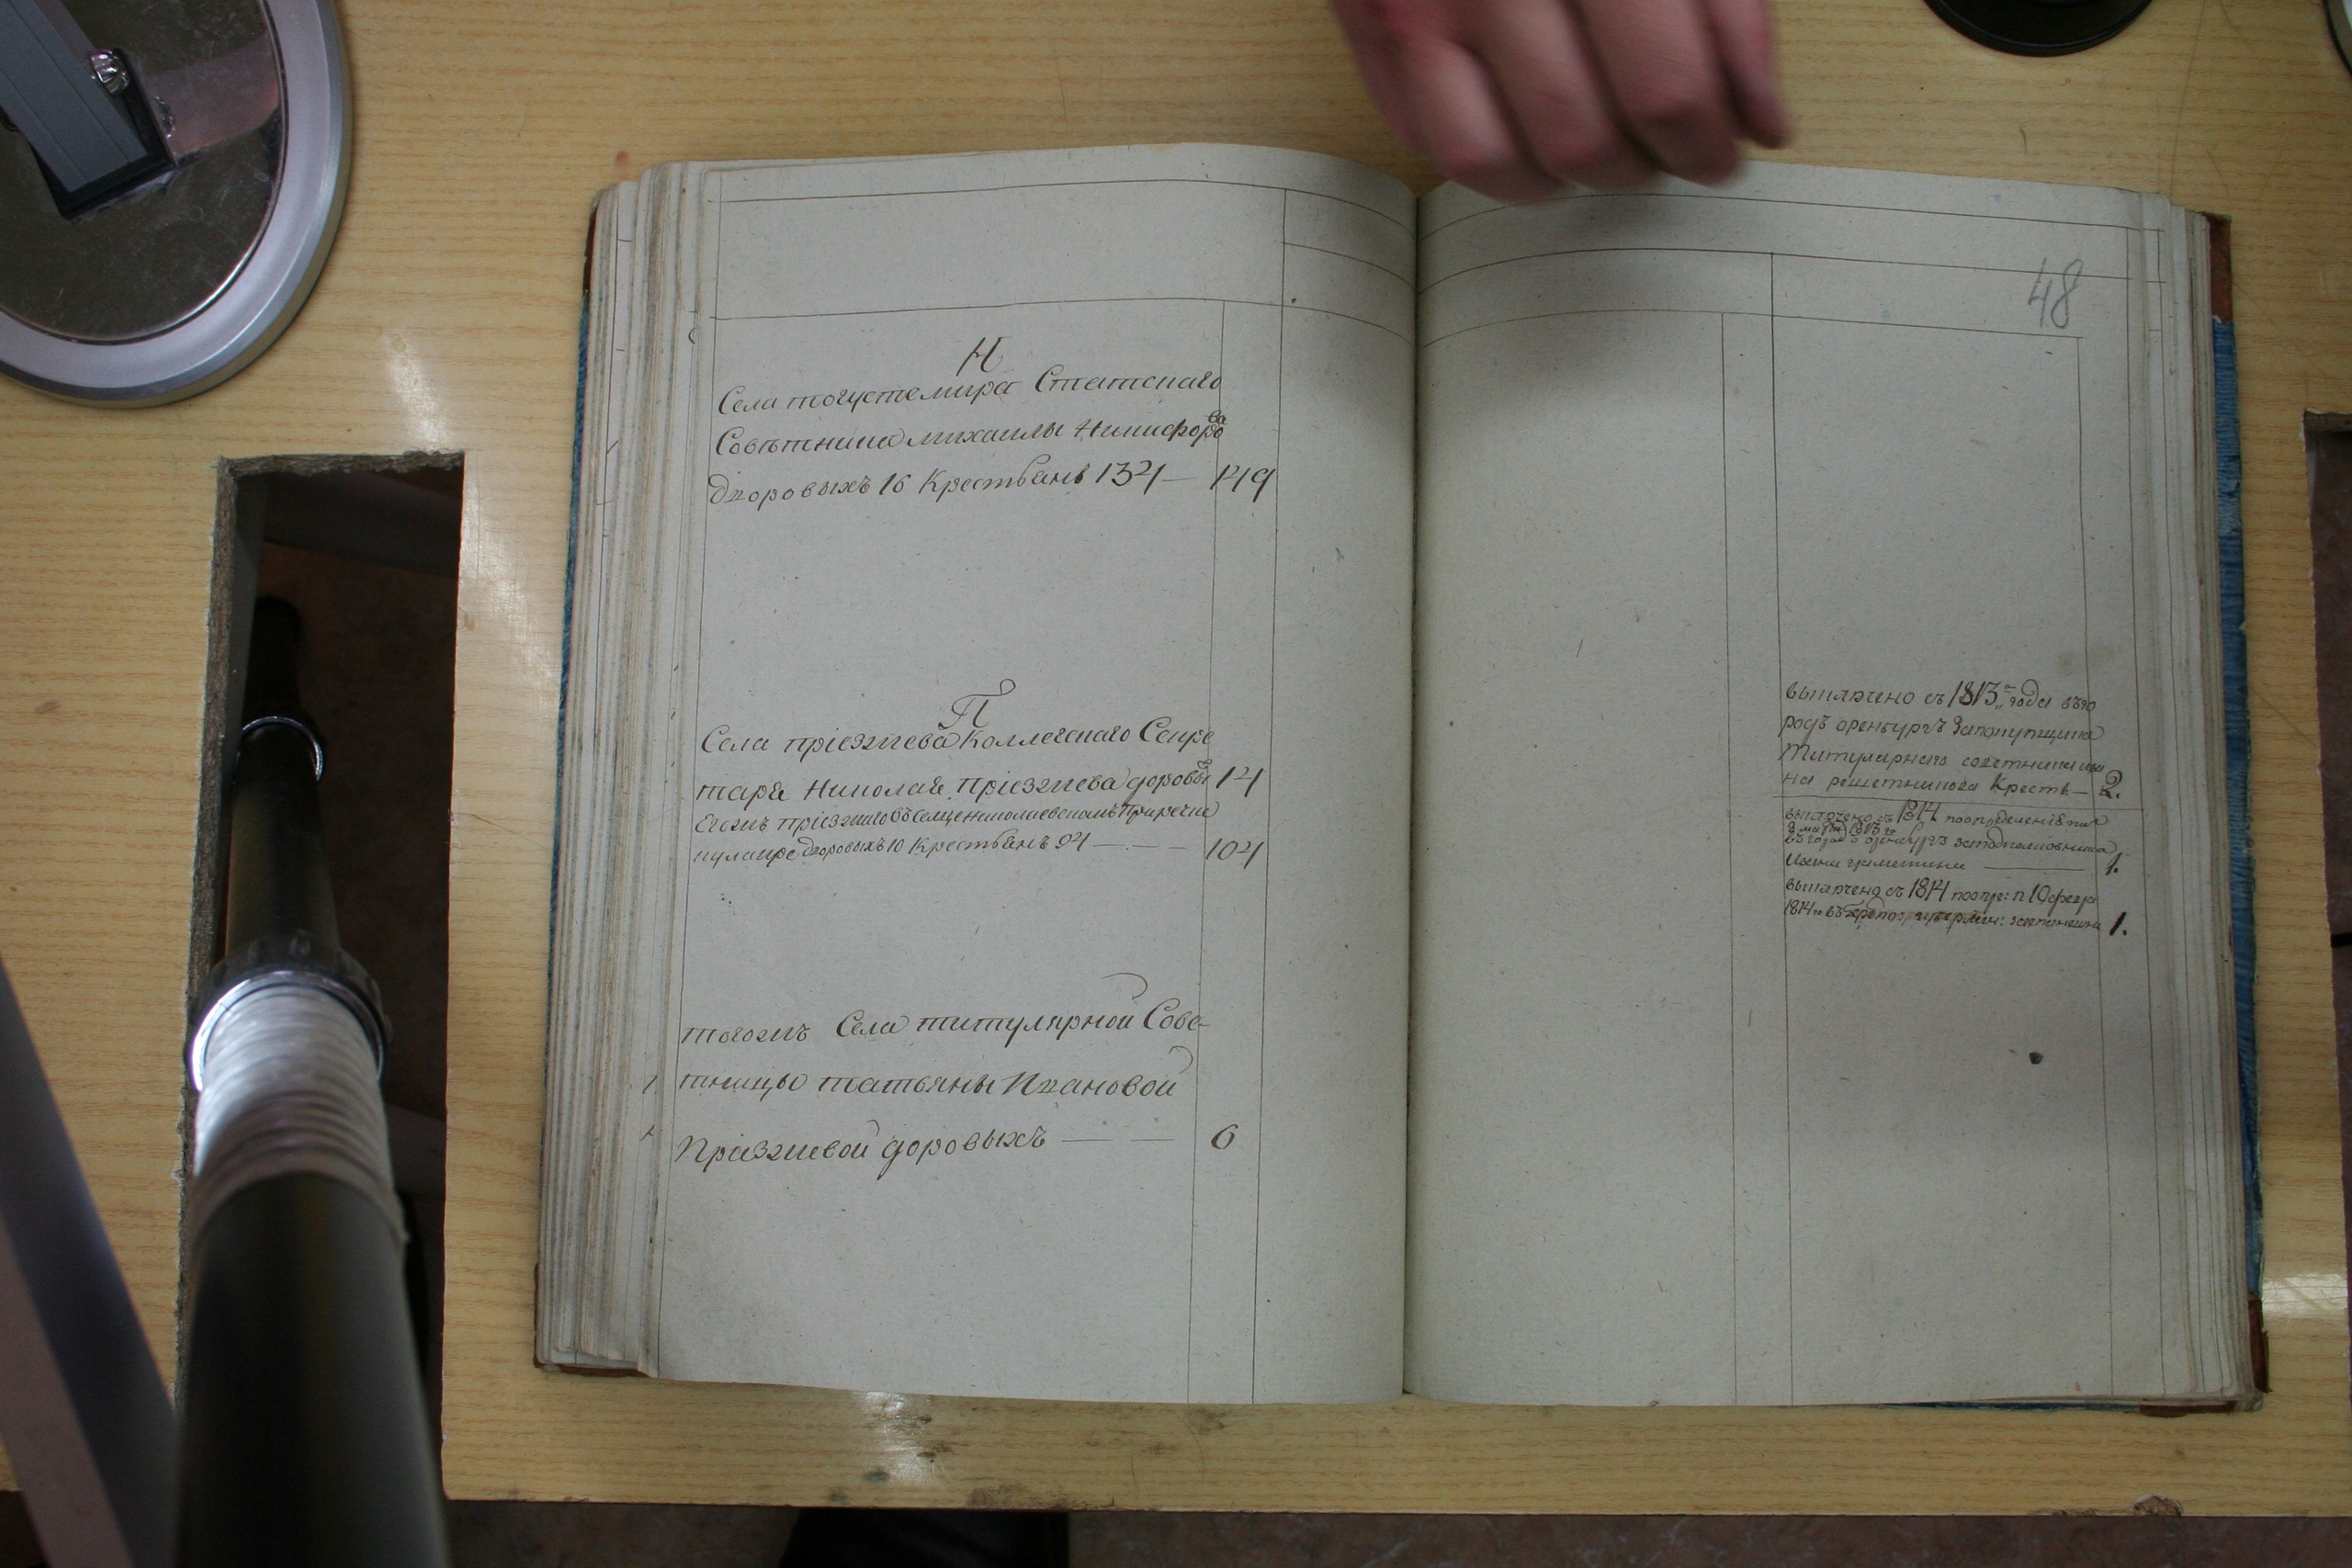 Н
Села тогустемира Статскаго
Советника михаилы Никифорова
дворовыхъ 16 Крестьянъ 134 — 149
П
Села приезжева Коллегскаго Секре
таря Николая приезжева дворовы 14
Егожъ приезжаго въ Селце николаевскомъ
дворовыхъ 10 Крестьянъ 94 — — — 104
тогожъ Села титулярной Сове-
тницы татьяны Ивановой
Приезжевой дворовыхъ — — 6
48
выключено съ 1813 года въ го
родъ оренбургъ Запокупщика
титулярнаго советника
на решетникова Крестъ — 2.
выключено съ 1814
1813
въ городъ оренбургъ
— 1.
выключено съ 1814
1814 въ 1.